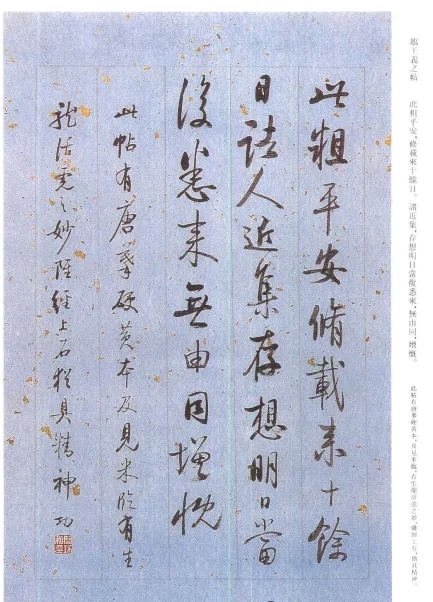 臨王羲之帖　此粗平安，修載來十餘日。諸近集，存想明日當復悉來，無由同，增慨。
此帖有唐摹硬黃本，及見米臨，有生龍活虎之妙，雖經上石，猶具精神。
此粗平安脩載來十餘
日諸人近集存想明日當
復悉來無由同增慨
此帖有唐摹硬黃本及見米臨有生
龍活虎之妙雖經上石猶具精神 功